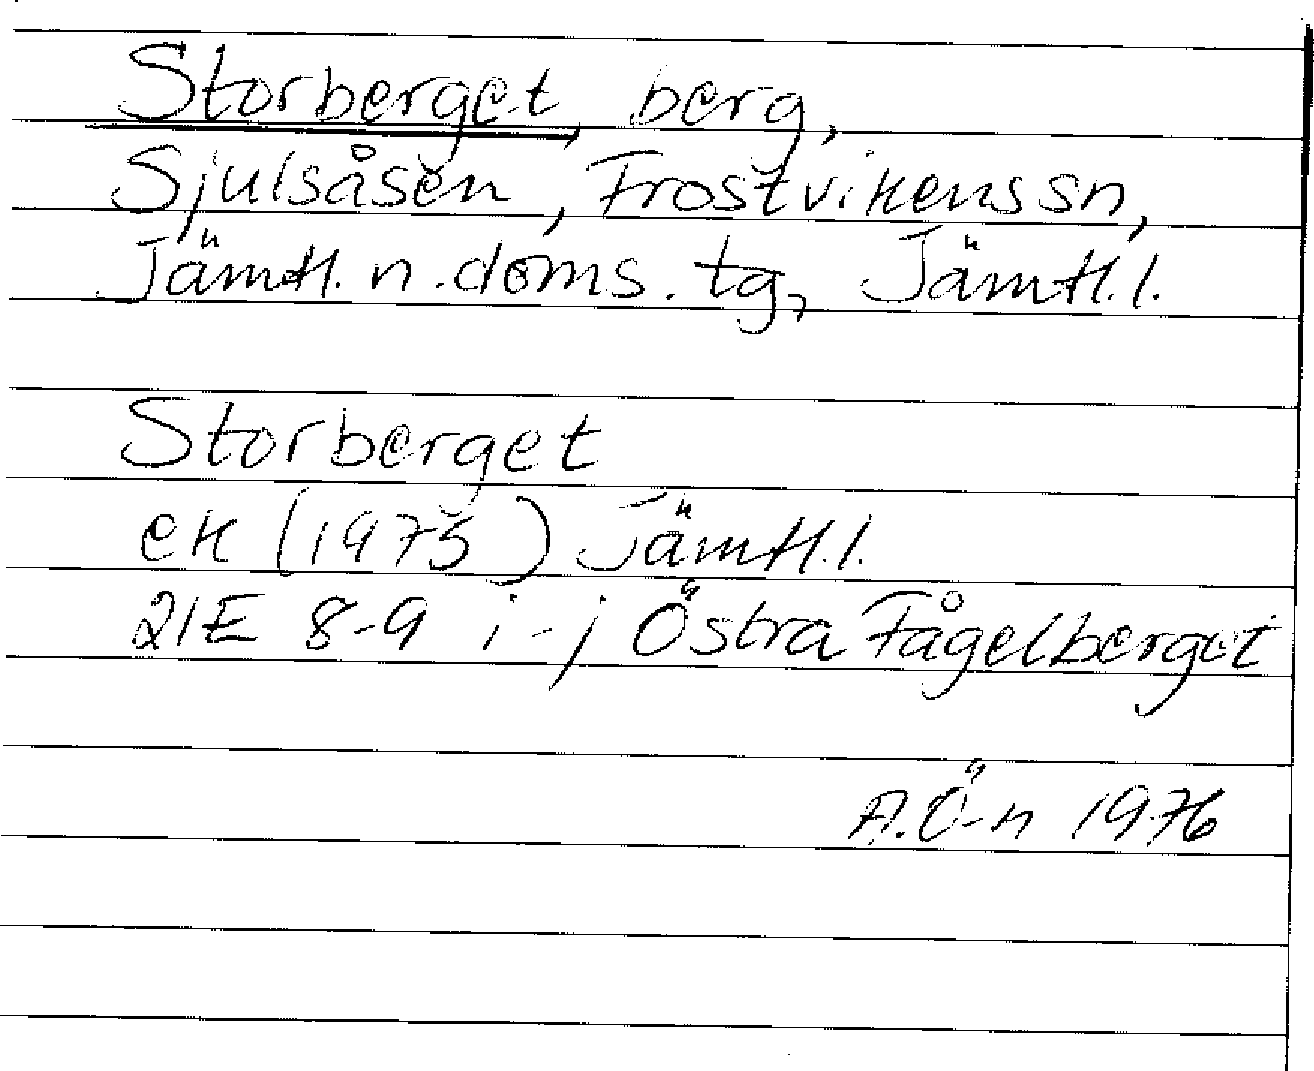 Storberget, berg,
Sjulsåsen, Frostvikens sn,
Jämtl. n. doms. tg, Jämtl. l.
Storberget
ek (1975) Jämtl. l.
21E 8-9 i-j Östra Fågelberget
A.Ö-n 1976